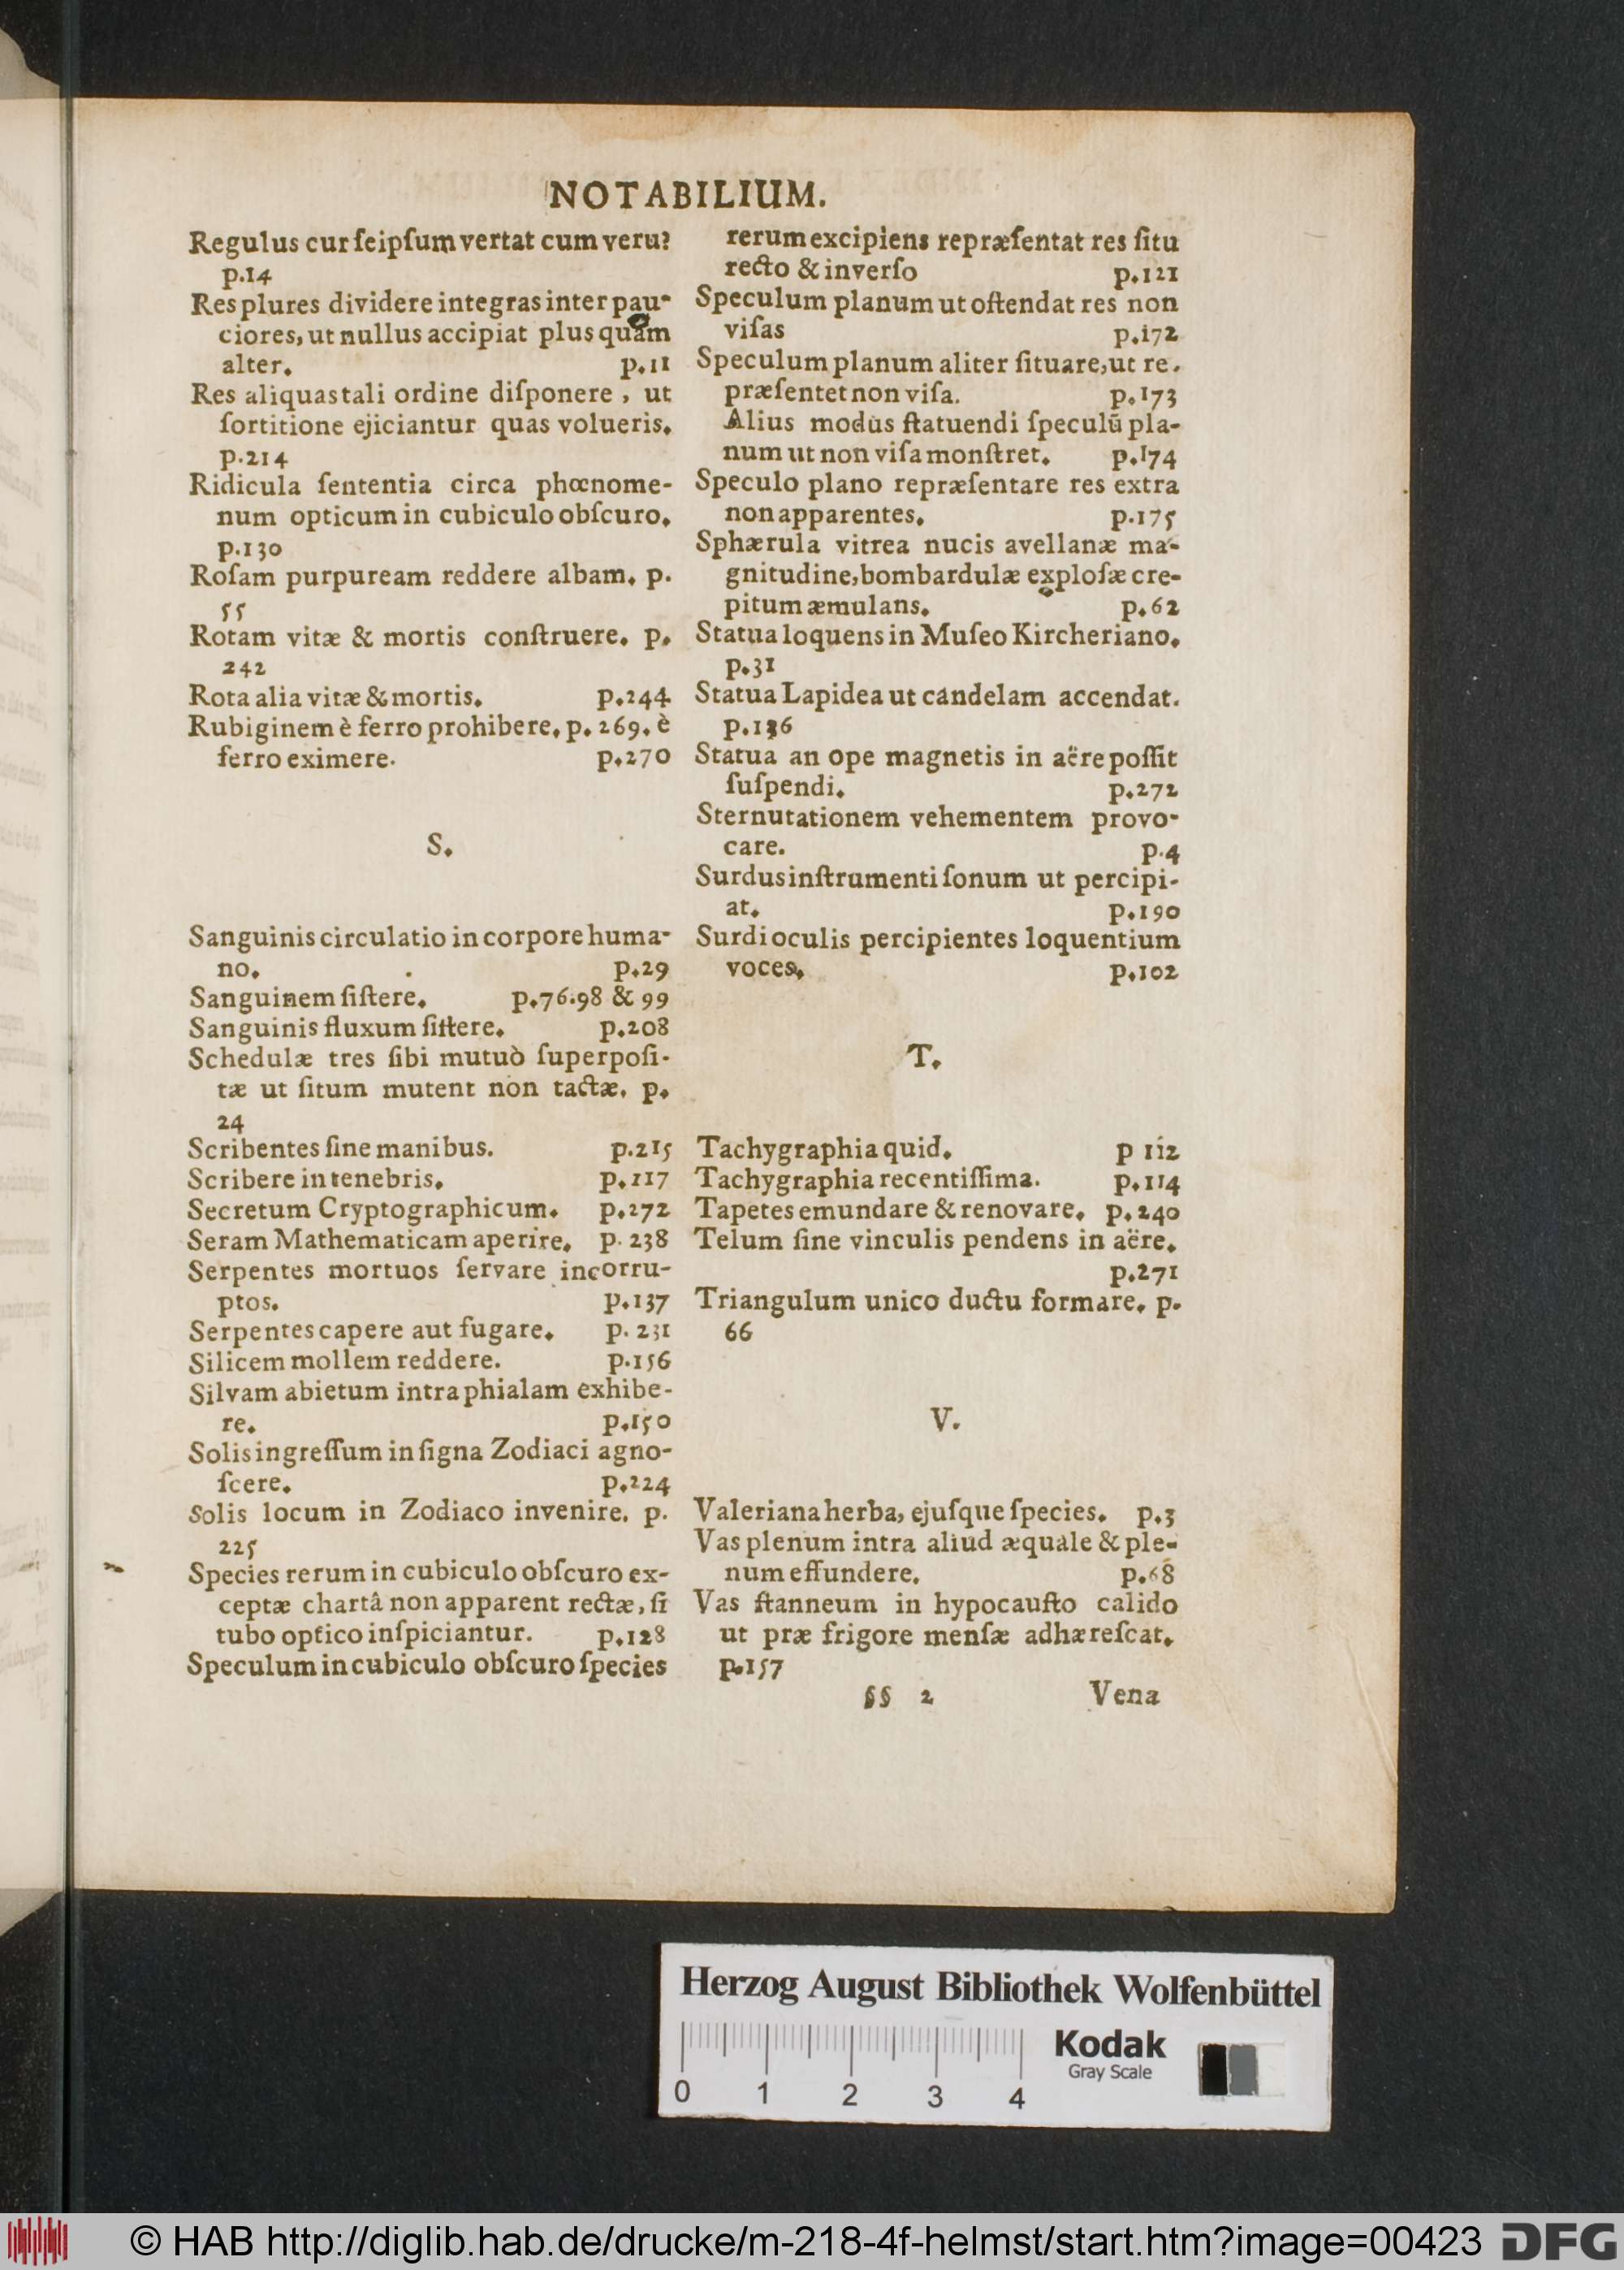 NOTABILIUM.
Regulus cur ſeipſum vertat cum veru?
p.14
Res plures dividere integras inter pau-
ciores, ut nullus accipiat plus quam
alter. p.11
Res aliquas tali ordine diſponere, ut
ſortitione ejiciantur quas volueris.
p.214
Ridicula ſententia circa phœnome-
num opticum in cubiculo obſcuro.
p.130
Roſam purpuream reddere albam. p.
55
Rotam vitæ & mortis conſtruere. p.
242
Rota alia vitæ & mortis. p.244
Rubiginem è ferro prohibere. p. 269. è
ferro eximere. p.270
S.
Sanguinis circulatio in corpore huma-
no. p.29
Sanguinem ſiſtere. p.76.98 & 99
Sanguinis fluxum ſittere. p.208
Schedulæ tres ſibi mutuò ſuperpoſi-
tæ ut ſitum mutent non tactæ. p.
24
Scribentes ſine manibus. p.215
Scribere in tenebris. p.117
Secretum Cryptographicum. p.272
Seram Mathematicam aperire. p. 238
Serpentes mortuos ſervare incorru-
ptos. p.137
Serpentes capere aut fugare. p. 231
Silicem mollem reddere. p.156
Silvam abietum intra phialam exhibe-
re. p.150
Solis ingreſſum in ſigna Zodiaci agno-
ſcere. p.224
Solis locum in Zodiaco invenire. p.
225
Species rerum in cubiculo obſcuro ex-
ceptæ chartâ non apparent rectæ, ſi
tubo optico inſpiciantur. p.128
Speculum in cubiculo obſcuro ſpecies
rerum excipiens repræſentat res ſitu
recto & inverſo p.121
Speculum planum ut oſtendat res non
viſas p.172
Speculum planum aliter ſituare, ut re-
præſentet non viſa. p.173
Alius modus ſtatuendi ſpeculū pla-
num ut non viſa monſtret. p.174
Speculo plano repræſentare res extra
non apparentes. p.175
Sphærula vitrea nucis avellanæ ma-
gnitudine, bombardulæ exploſæ cre-
pitum æmulans. p.62
Statua loquens in Muſeo Kircheriano.
p.31
Statua Lapidea ut candelam accendat.
p.136
Statua an ope magnetis in aëre poſſit
ſuſpendi. p.272
Sternutationem vehementem provo-
care. p.4
Surdus inſtrumenti ſonum ut percipi-
at. p.190
Surdi oculis percipientes loquentium
voces. p.102
T.
Tachygraphia quid. p 112
Tachygraphia recentiſſima. p.114
Tapetes emundare & renovare. p.240
Telum ſine vinculis pendens in aëre.
p.271
Triangulum unico ductu formare. p.
66
V.
Valeriana herba, ejuſque ſpecies. p.3
Vas plenum intra aliud æquale & ple-
num effundere. p.68
Vas ſtanneum in hypocauſto calido
ut præ frigore menſæ adhæreſcat.
p.157
§§ 2 Vena
Herzog August Bibliothek Wolfenbüttel
Kodak
Gray Scale
0 1 2 3 4
© HAB http://diglib.hab.de/drucke/m-218-4f-helmst/start.htm?image=00423 DFG